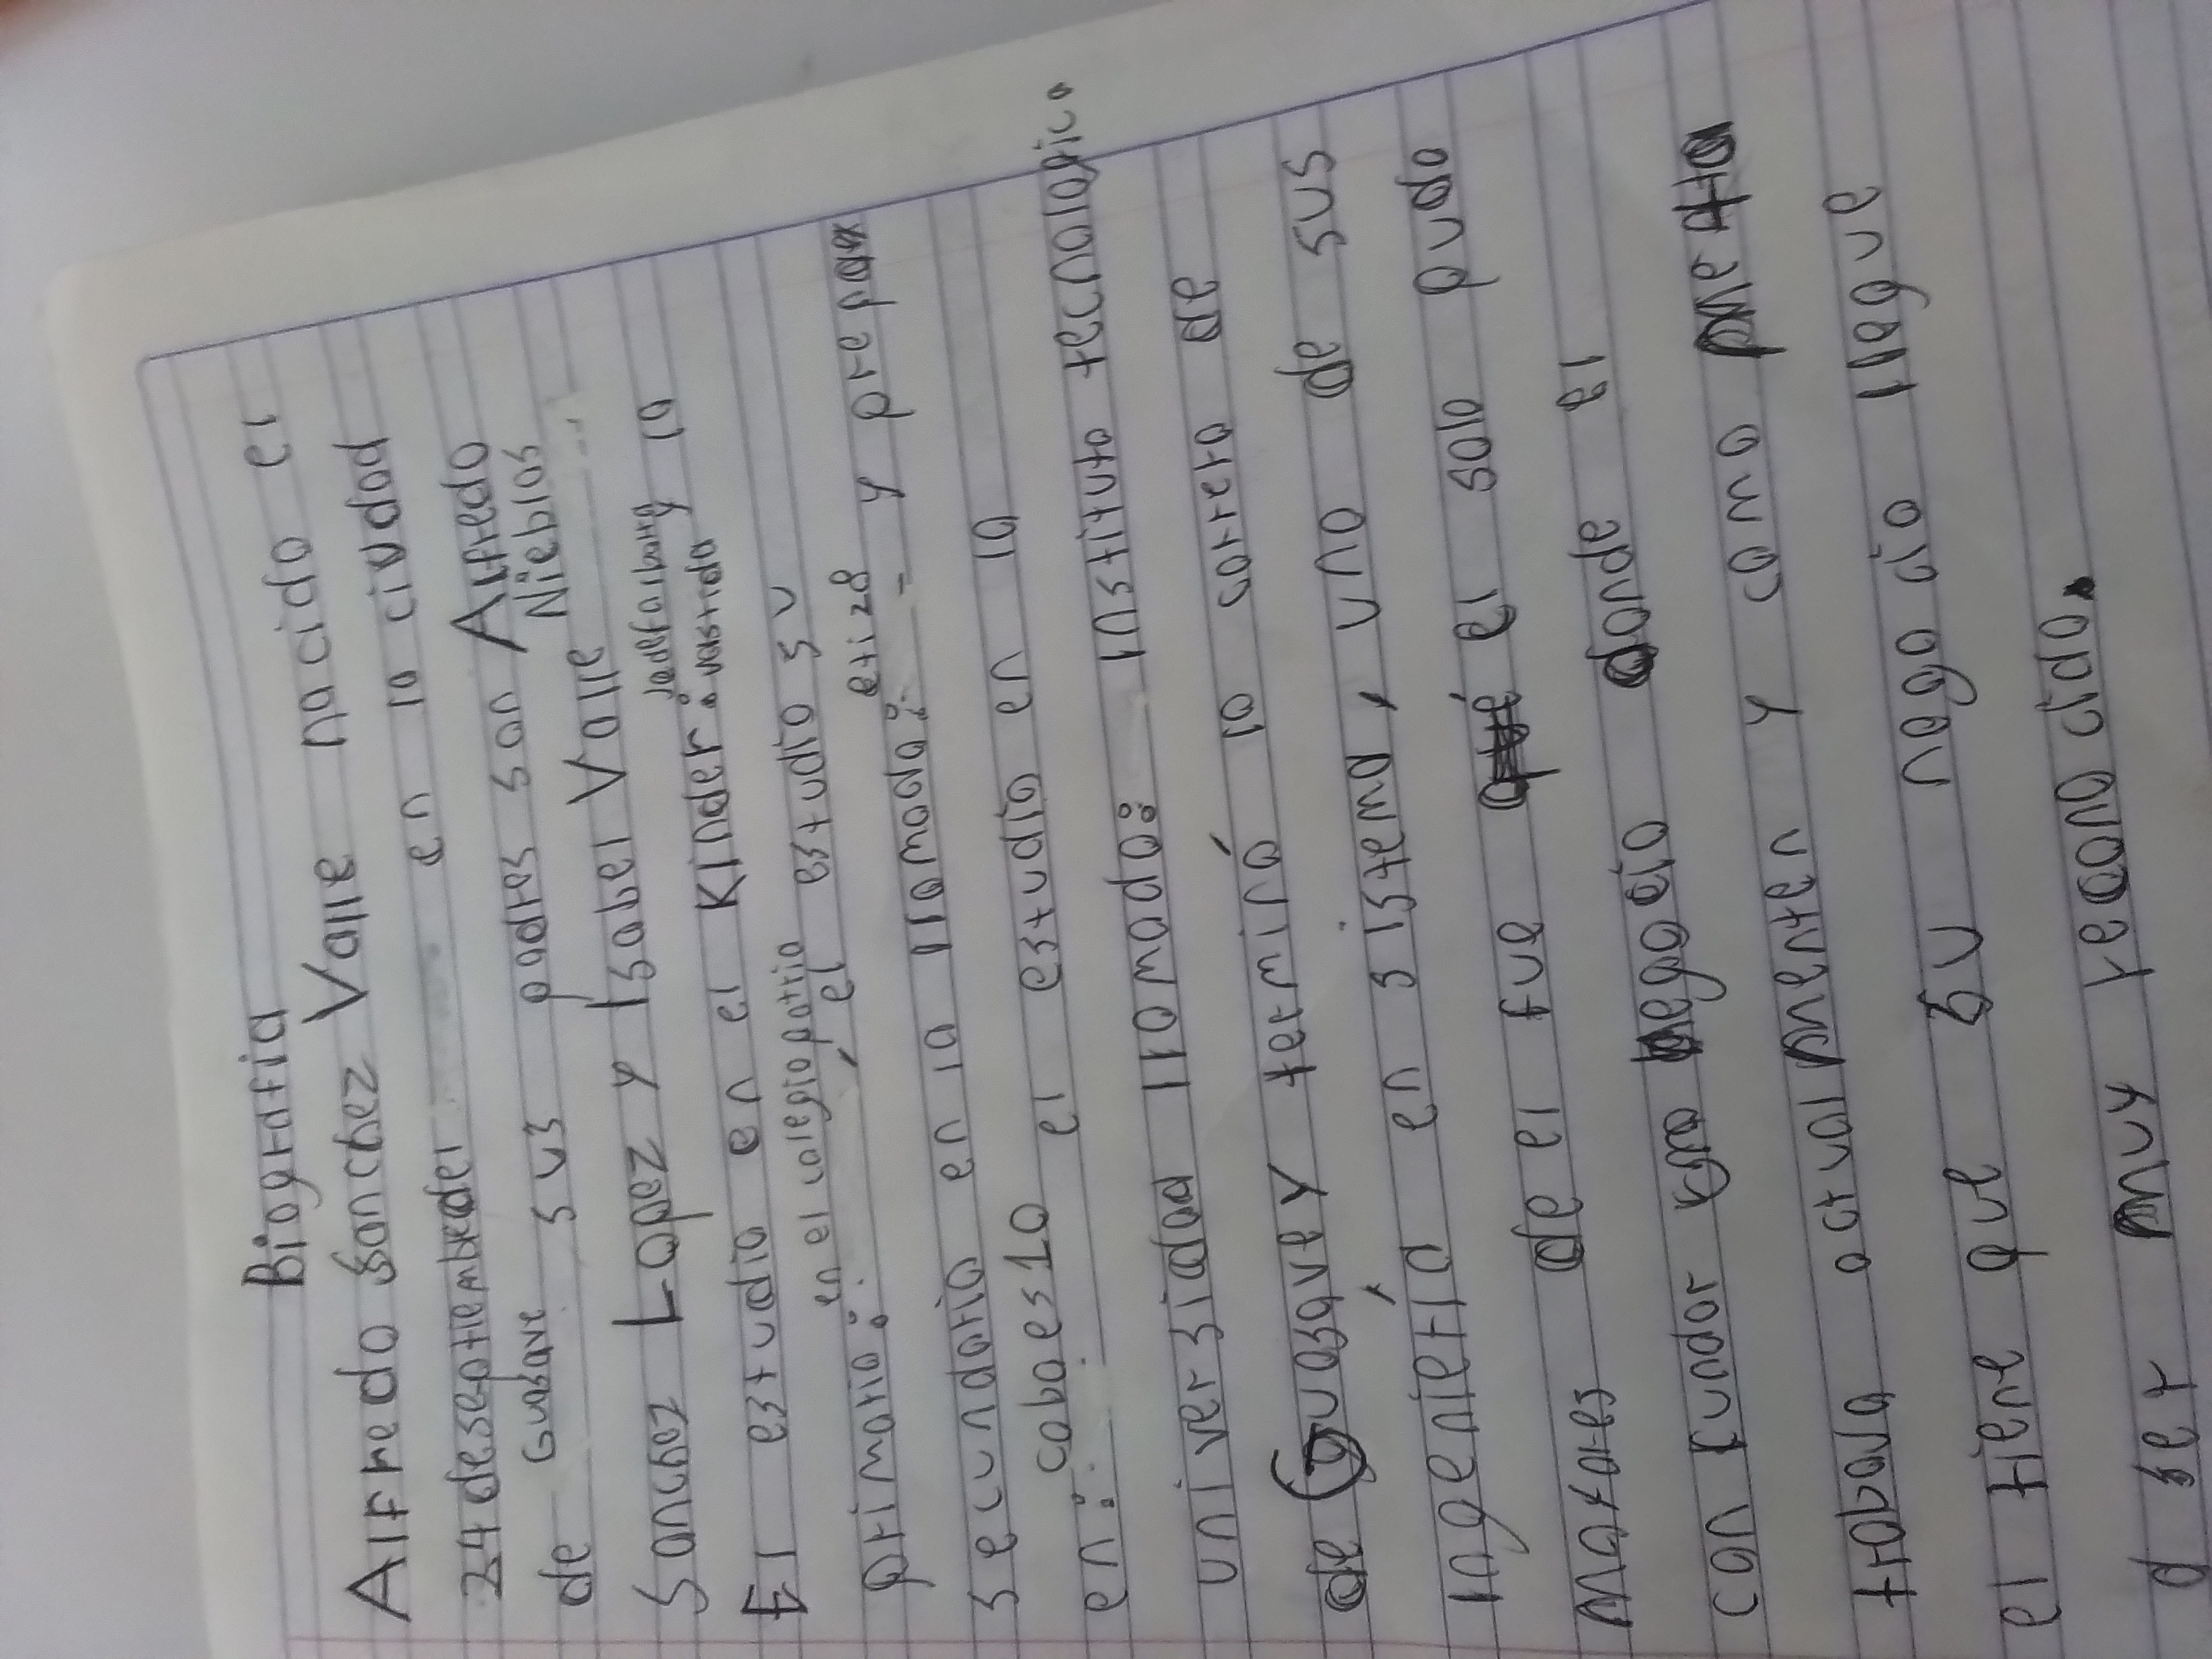 Biografia
Alfredo Sanchez Valle nacido el
24 de septiembre del en la ciudad
de Guasave sus padres son Alfredo
Sanchez Lopez y Isabel Valle Nieblas
El estudio en el Kinder: vastida y la
primaria: en el colegio patria, el estudio su
secundaria en la llamada: eti 28 y prepa
en: cobaes 10 el estudio en la
universidad llamado: instituto tecnologico
de Guasave y terminó la carrera de
ingenieria en sistema, uno de sus
mayores de el fue el solo pudo
con fundar negocio donde el
trabaja actual menten y como meta
el tiene que su nego cio llegue
a ser muy reconocido.